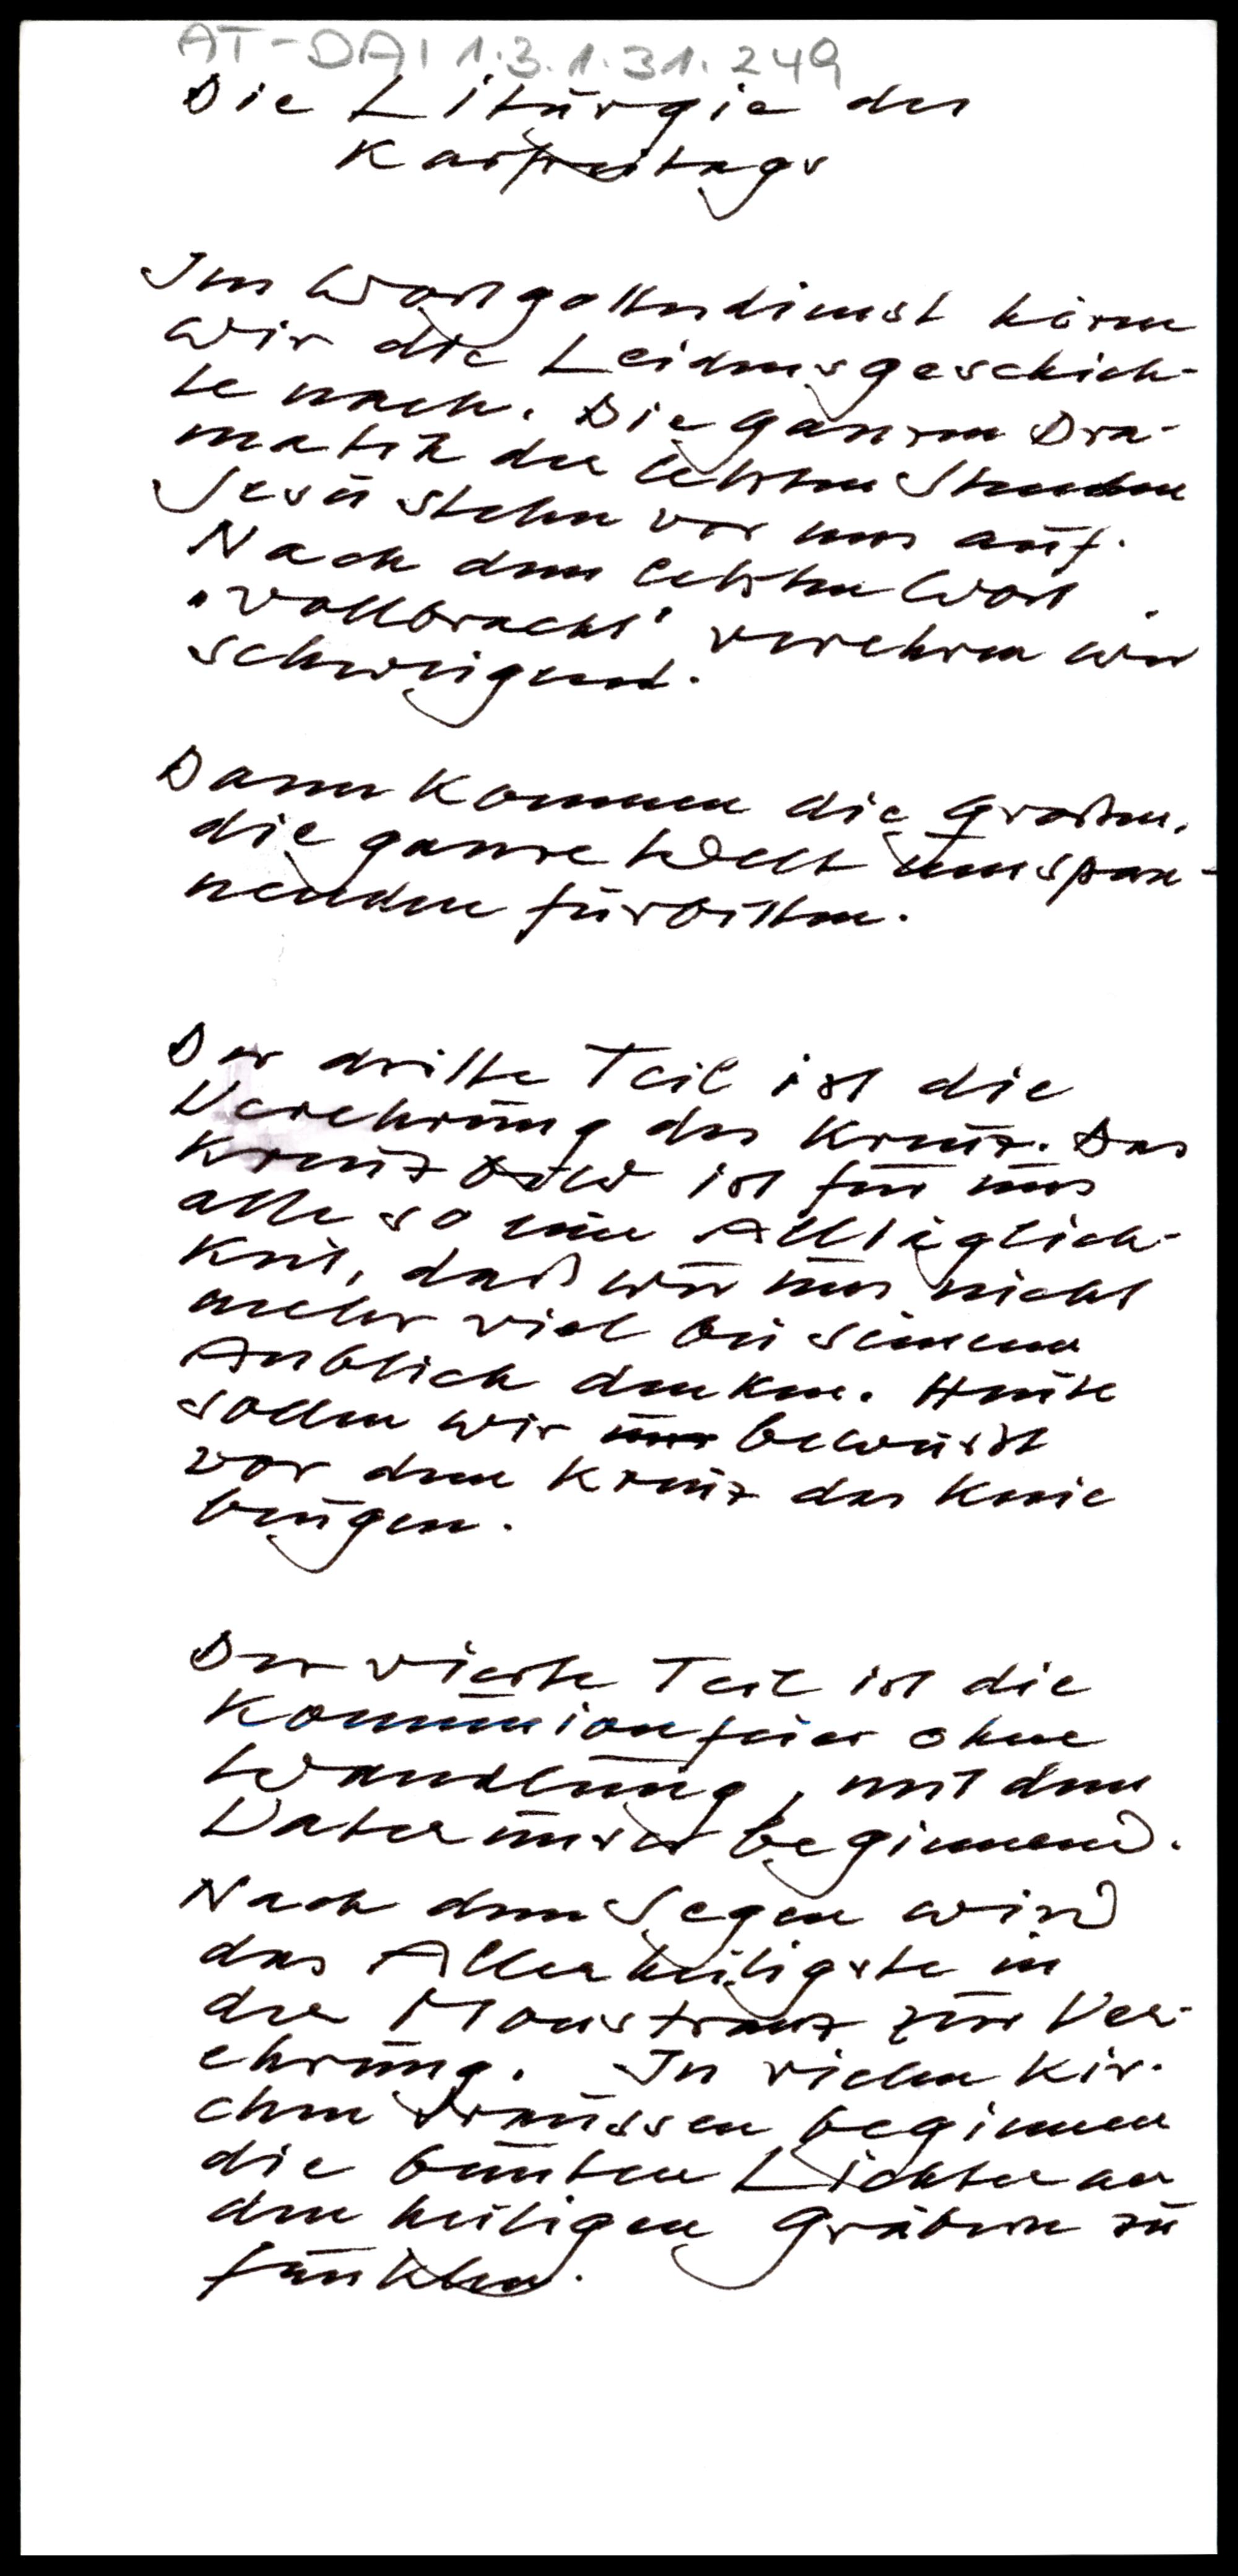 AT-DAI 1.3.1.31.249
Die Liturgie des
Karfreitags
Im Wortgottesdienst hören
wir die Leidensgeschich-
te nach. Die ganzen Dra-
matik der letzten Stunden
Jesu stehen vor uns auf.
Nach dem letzten Wort
"vollbracht" verehren wir
schweigend.
Dann kommen die großen,
die ganze Welt umspan-
nenden Fürbitten.
Der dritte Teil ist die
Verehrung des Kreuz. Das
Kreuzbild ist für uns
alle so eine Alltäglich-
keit, daß wir uns nicht
mehr viel bei seinem
Anblick denken. Heute
sollen wir uns bewusst
vor dem Kreuz das Knie
beugen.
Der vierte Teil ist die
Kommunionfeier ohne
Wandlung, mit dem
Vater unser beginnend.
Nach dem Segen wird
das Allerheiligste in
der Monstranz zur Ver-
ehrung. In vielen Kir-
chen draussen beginnen
die bunten Lichter an
den heiligen Gräbern zu
funkeln.